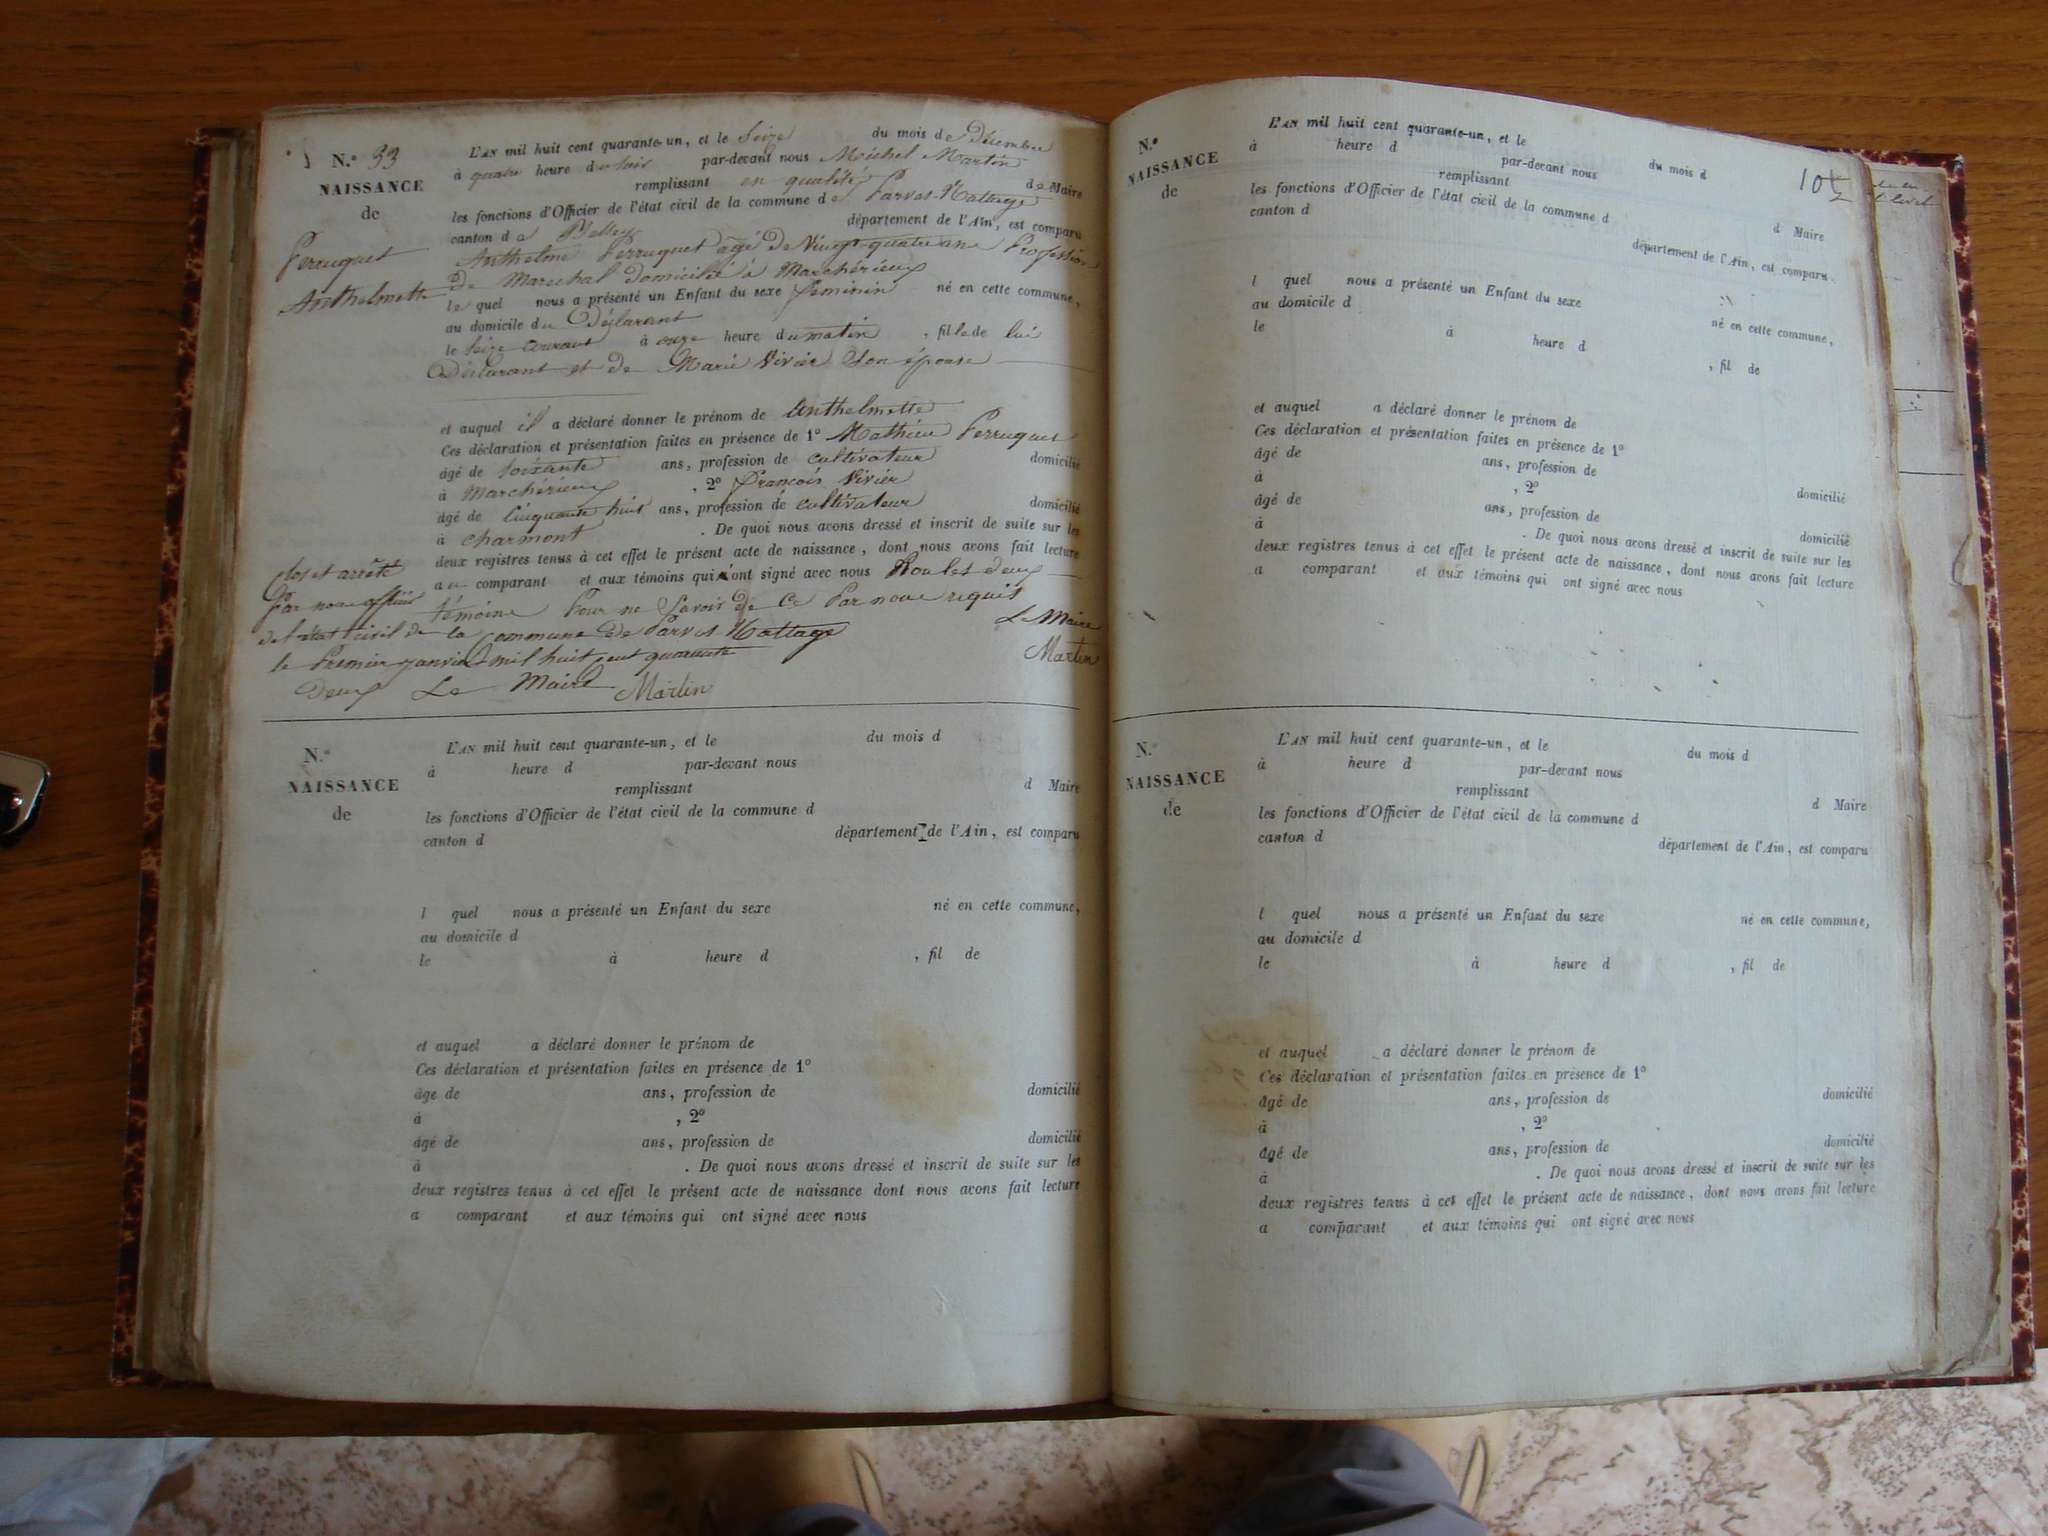 N.º 33
NAISSANCE
de
Perruquet
Anthelmette
L'AN mil huit cent quarante-un, et le Seize du mois de Décembre
à quatre heure du soir par-devant nous Michel Martin
remplissant en qualité de Maire
les fonctions d'Officier de l'état civil de la commune de Parves-Nattage
canton de Belley département de l'Ain, est comparu
Anthelme Perruquet âgé de Vingt-quatre ans Profession
de Marechal domicilié à Marchérieux
le quel nous a présenté un Enfant du sexe féminin né en cette commune,
au domicile du Déclarant
le Seize courant à onze heure du matin , fille de lui
Déclarant et de Marie Vivier Son épouse
et auquel il a déclaré donner le prénom de Anthelmette
Ces déclaration et présentation faites en présence de 1º Mathieu Perruquet
âgé de soixante ans, profession de cultivateur domicilié
à Marchérieux , 2º François Vivier
âgé de Cinquante huit ans, profession de cultivateur domicilié
à charmont . De quoi nous avons dressé et inscrit de suite sur les
deux registres tenus à cet effet le présent acte de naissance, dont nous avons fait lecture
au comparant et aux témoins qui n'ont signé avec nous Non les deux
témoins Pour ne Savoir de Ce Par nous requis
Le Maire
Martin
Clos et arrêté
Par nous officier
de l'état civil de la Commune de Parves Nattage
le Premier janvier mil huit cent quarante
Deux Le Maire Martin
N.º
NAISSANCE
de
L'AN mil huit cent quarante-un, et le du mois d
à heure d par-devant nous
remplissant d Maire
les fonctions d'Officier de l'état civil de la commune d
canton d département de l'Ain, est comparu
l quel nous a présenté un Enfant du sexe né en cette commune,
au domicile d
le à heure d , fil de
et auquel a déclaré donner le prénom de
Ces déclaration et présentation faites en présence de 1º
âge de ans, profession de domicilié
à , 2º
âgé de ans, profession de domicilié
à . De quoi nous avons dressé et inscrit de suite sur les
deux registres tenus à cet effet le présent acte de naissance dont nous avons fait lecture
a comparant et aux témoins qui ont signé avec nous
N.º
NAISSANCE
de
L'AN mil huit cent quarante-un, et le du mois d
à heure d par-devant nous
remplissant d Maire
les fonctions d'Officier de l'état civil de la commune d
canton d département de l'Ain, est comparu.
l quel nous a présenté un Enfant du sexe né en cette commune,
au domicile d
le à heure d , fil de
et auquel a déclaré donner le prénom de
Ces déclaration et présentation faites en présence de 1º
âgé de ans, profession de domicilié
à , 2º
âgé de ans, profession de domicilié
à . De quoi nous avons dressé et inscrit de suite sur les
deux registres tenus à cet effet le présent acte de naissance, dont nous avons fait lecture
a comparant et aux témoins qui ont signé avec nous
N.º
NAISSANCE
de
L'AN mil huit cent quarante-un, et le du mois d
à heure d par-devant nous
remplissant d Maire
les fonctions d'Officier de l'état civil de la commune d
canton d département de l'Ain, est comparu
l quel nous a présenté un Enfant du sexe né en cette commune,
au domicile d
le à heure d , fil de
et auquel a déclaré donner le prénom de
Ces déclaration et présentation faites en présence de 1º
âgé de ans, profession de domicilié
à , 2º
âgé de ans, profession de domicilié
à . De quoi nous avons dressé et inscrit de suite sur les
deux registres tenus à cet effet le présent acte de naissance, dont nous avons fait lecture
a comparant et aux témoins qui ont signé avec nous